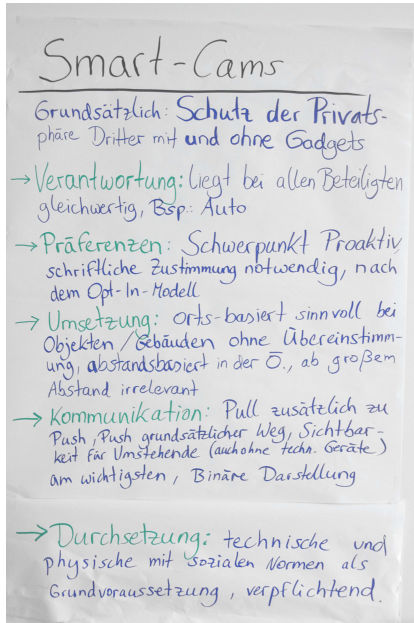 Smart-Cams
Grundsätzlich: Schutz der Privats-
phäre Dritter mit und ohne Gadgets
→ Verantwortung: Liegt bei allen Beteiligten
gleichwertig, Bsp.: Auto
→ Präferenzen: Schwerpunkt Proaktiv,
schriftliche Zustimmung notwendig, nach
dem Opt-In-Modell
→ Umsetzung: Orts-basiert sinnvoll bei
Objekten / Gebäuden ohne Übereinstimm-
ung, abstandsbasiert in der Ö., ab großem
Abstand irrelevant
→ Kommunikation: Pull zusätzlich zu
Push, Push grundsätzlicher Weg, Sichtbar-
keit für Umstehende (auch ohne techn. Geräte)
am wichtigsten, Binäre Darstellung
→ Durchsetzung: technische und
physische mit sozialen Normen als
Grundvoraussetzung, verpflichtend.